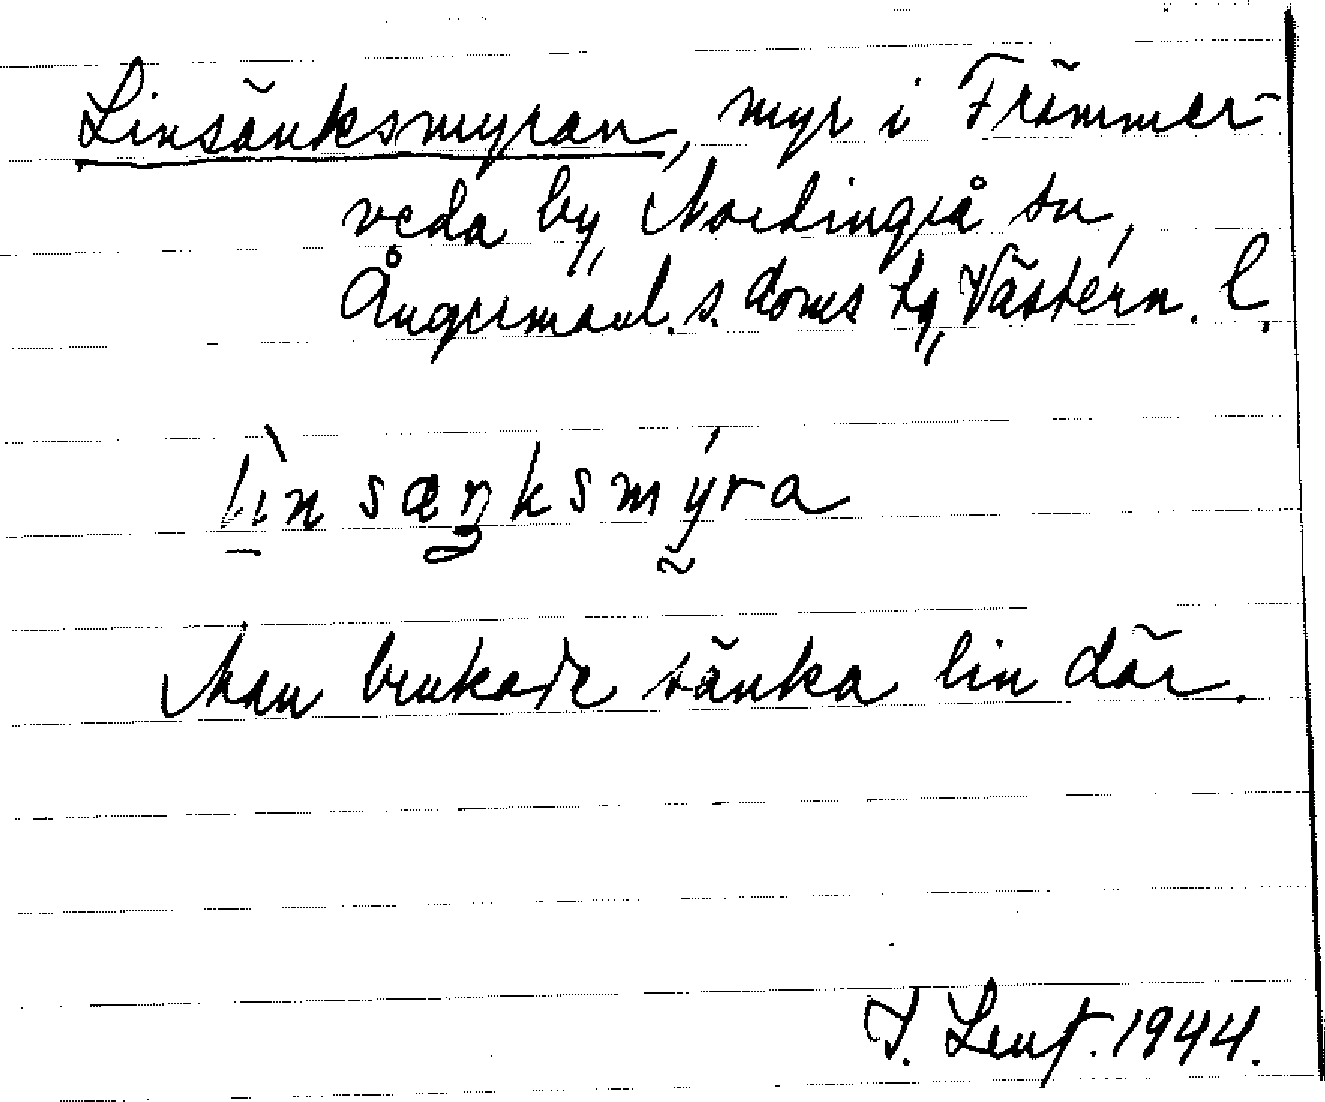 Linsänksmyran, myr i Främmer-
veda by, Nordingrå sn,
Ångermanl. s. doms tg, Västern. l.
lìnsæŋksmýra
Man brukade sänka lin där.
J. Lenf. 1944.